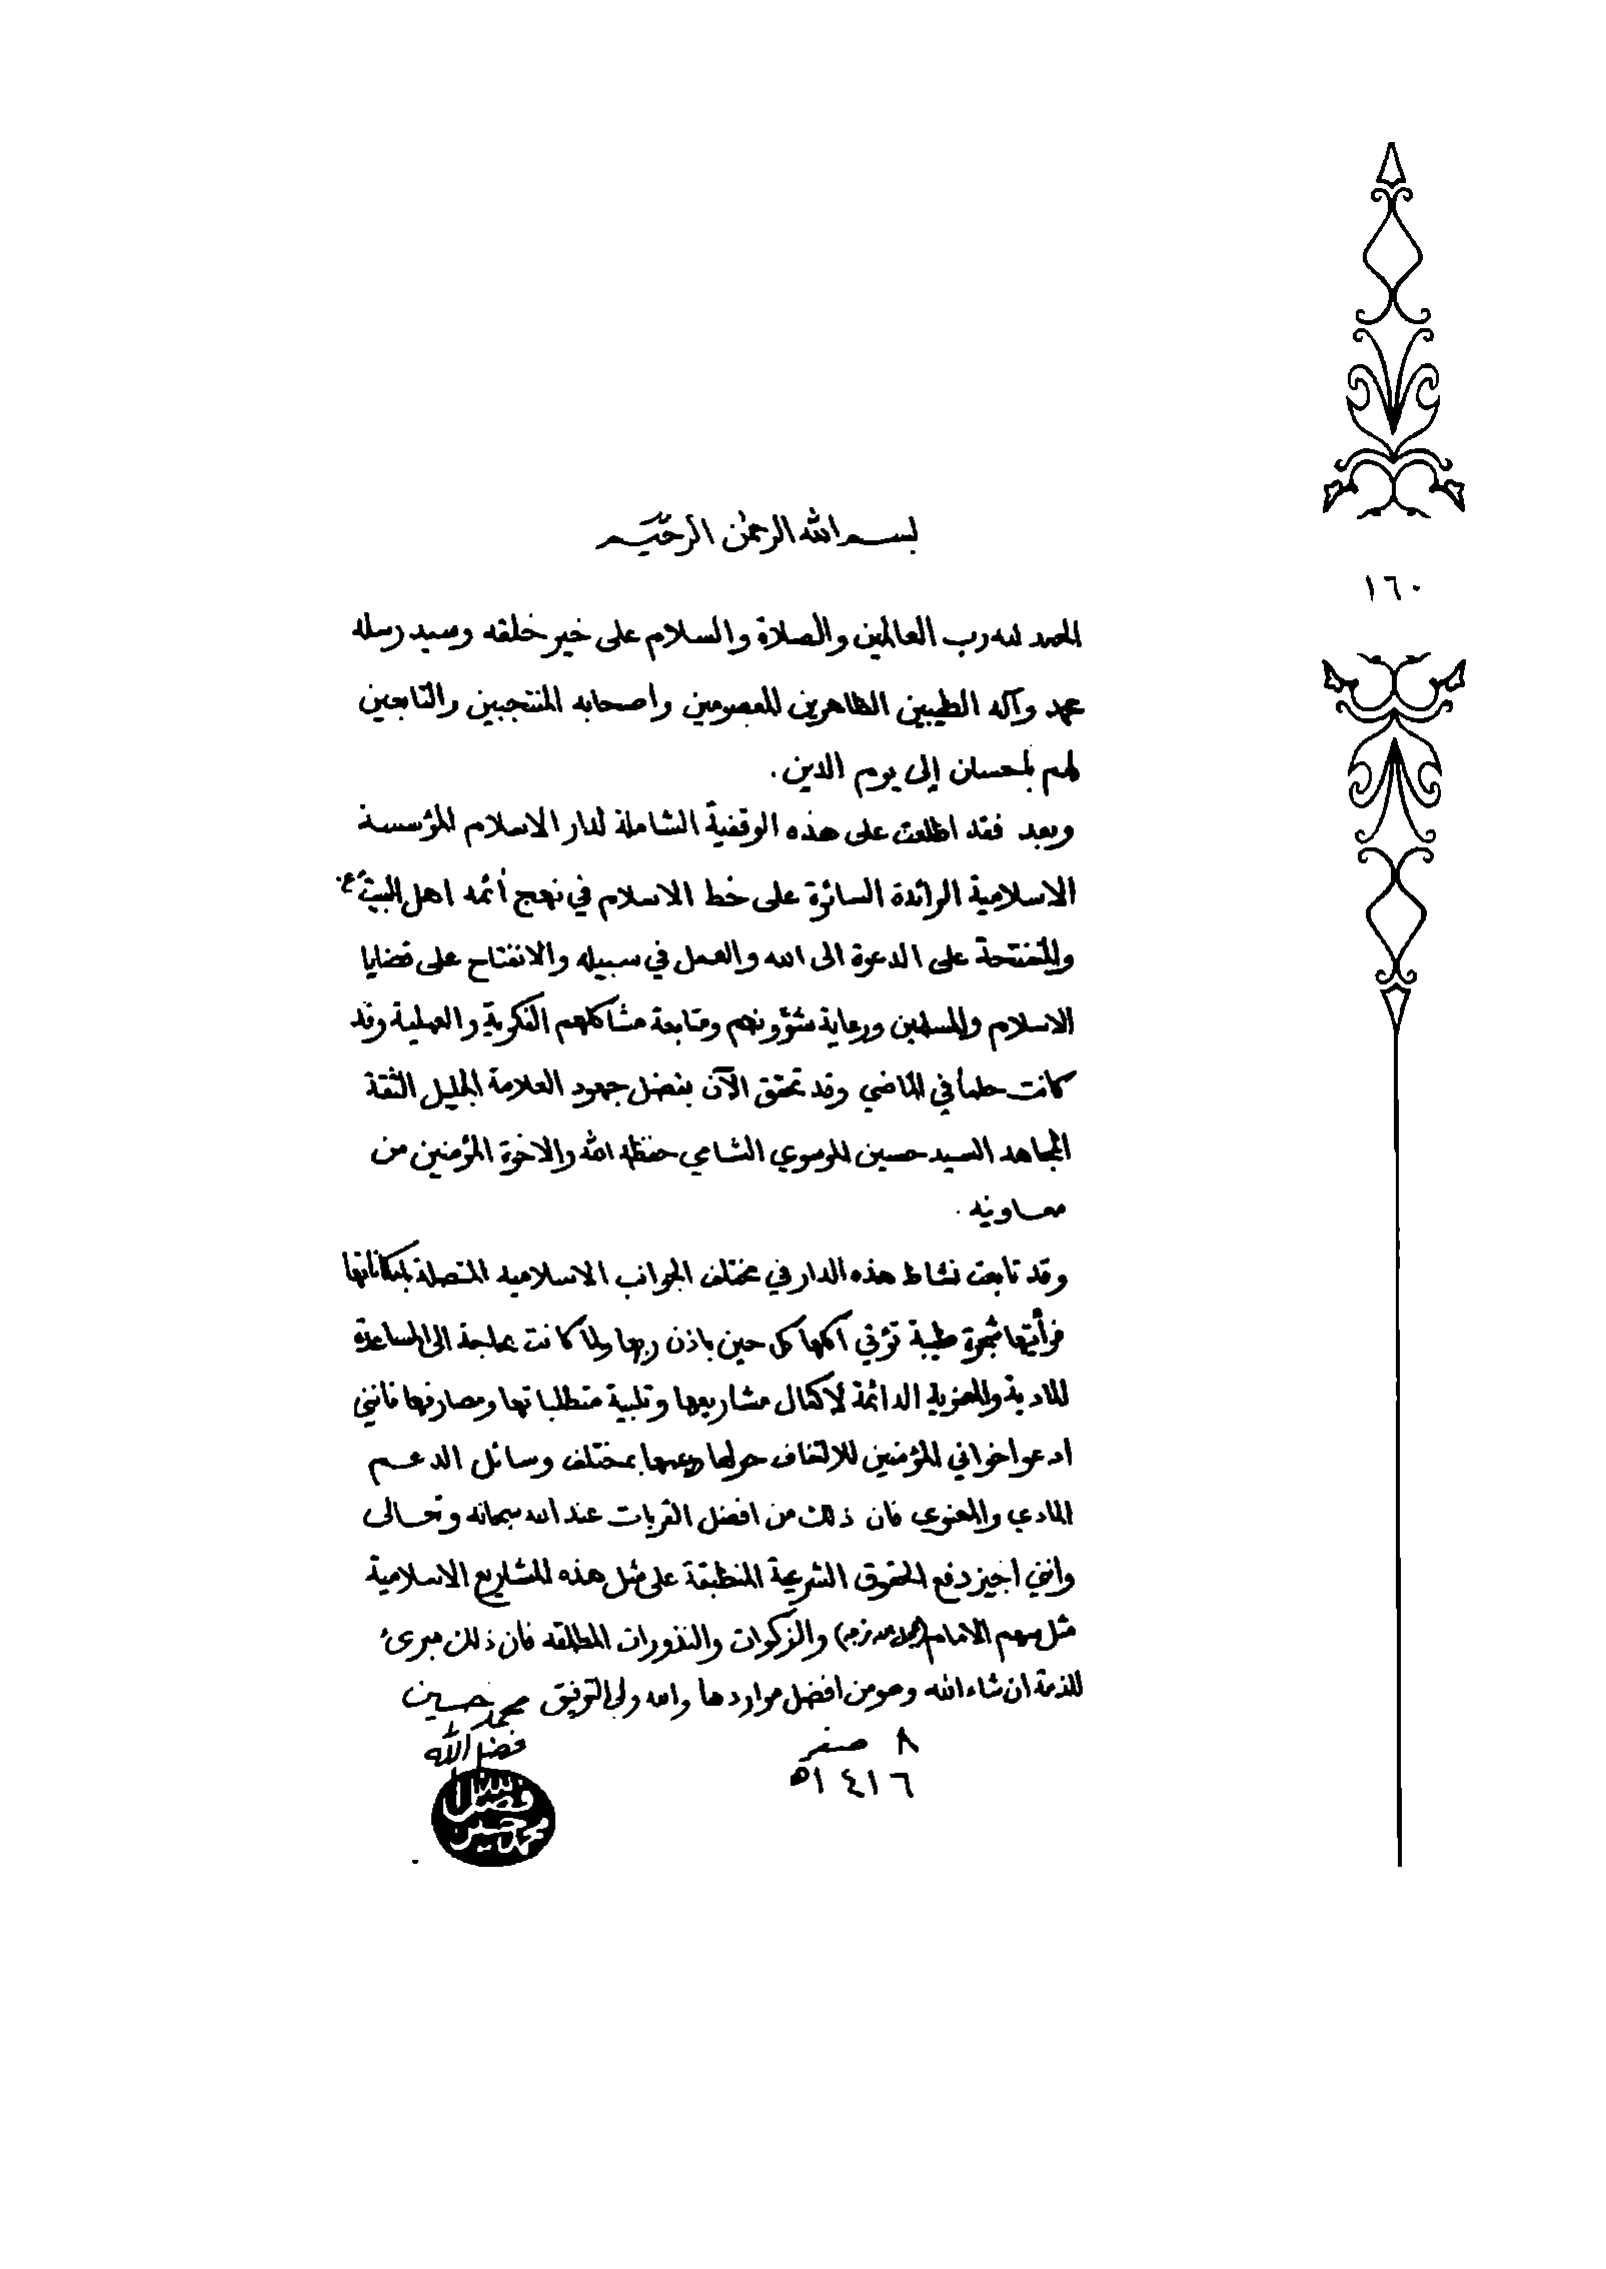 بسم الله الرحمن الرحيم
١٦٠
الحمد لله رب العالمين والصلاة والسلام على خير خلقه وسيد رسله
محمد وآله الطيبين الطاهرين المعصومين واصحابه المنتجبين والتابعين
لهم بإحسان إلى يوم الدين .
وبعد فقد اطلعت على هذه الوقفية الشاملة لدار الاسلام المؤسسة
الاسلامية الرائدة السائرة على خط الاسلام في نهج أئمه اهل البيت ع
والمنفتحة على الدعوة الى الله والعمل في سبيله والانفتاح على قضايا
الاسلام والمسلمين ورعاية شؤونهم ومتابعة مشاكلهم الفكرية والعملية وقد
كانت حلماً في الماضي وقد تحقق الآن بفضل جهود العلامة الجليل الثقة
المجاهد السيد حسين الموسوي الشامي حفظه الله والاخوة المؤمنين من
معاونيه .
وقد تابعت نشاط هذه الدار في مختلف الجوانب الاسلاميه المتصلة بإمكاناتها
فرأيتها شجرة طيبة تؤتي اكلها كل حين باذن ربها ولما كانت بحاجة الى المساعدة
المادية والمعنوية الدائمة لاكمال مشاريعها وتلبية متطلباتها ومصارفها فانني
ادعو اخواني المؤمنين للالتفاف حولها ودعمها بمختلف وسائل الدعم
المادي والمعنوي فان ذلك من افضل القربات عند الله سبحانه وتعالى
وانني اجيز دفع الحقوق الشرعية المنطبقة على مثل هذه المشاريع الاسلامية
مثل سهم الامام والزكوات والنذورات المطلقه فان ذلك مبرئ
للذمة ان شاء الله وهو من افضل مواردها والله ولي التوفيق محمد حسين
فضل الله
٨ صفر
١٤١٦ه
فضل الله
محمد حسين